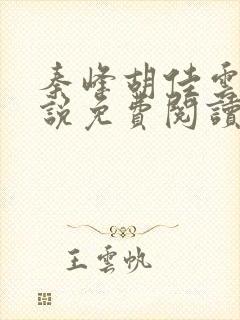 秦峰胡佳雲
說免費閱讀
王雲帆